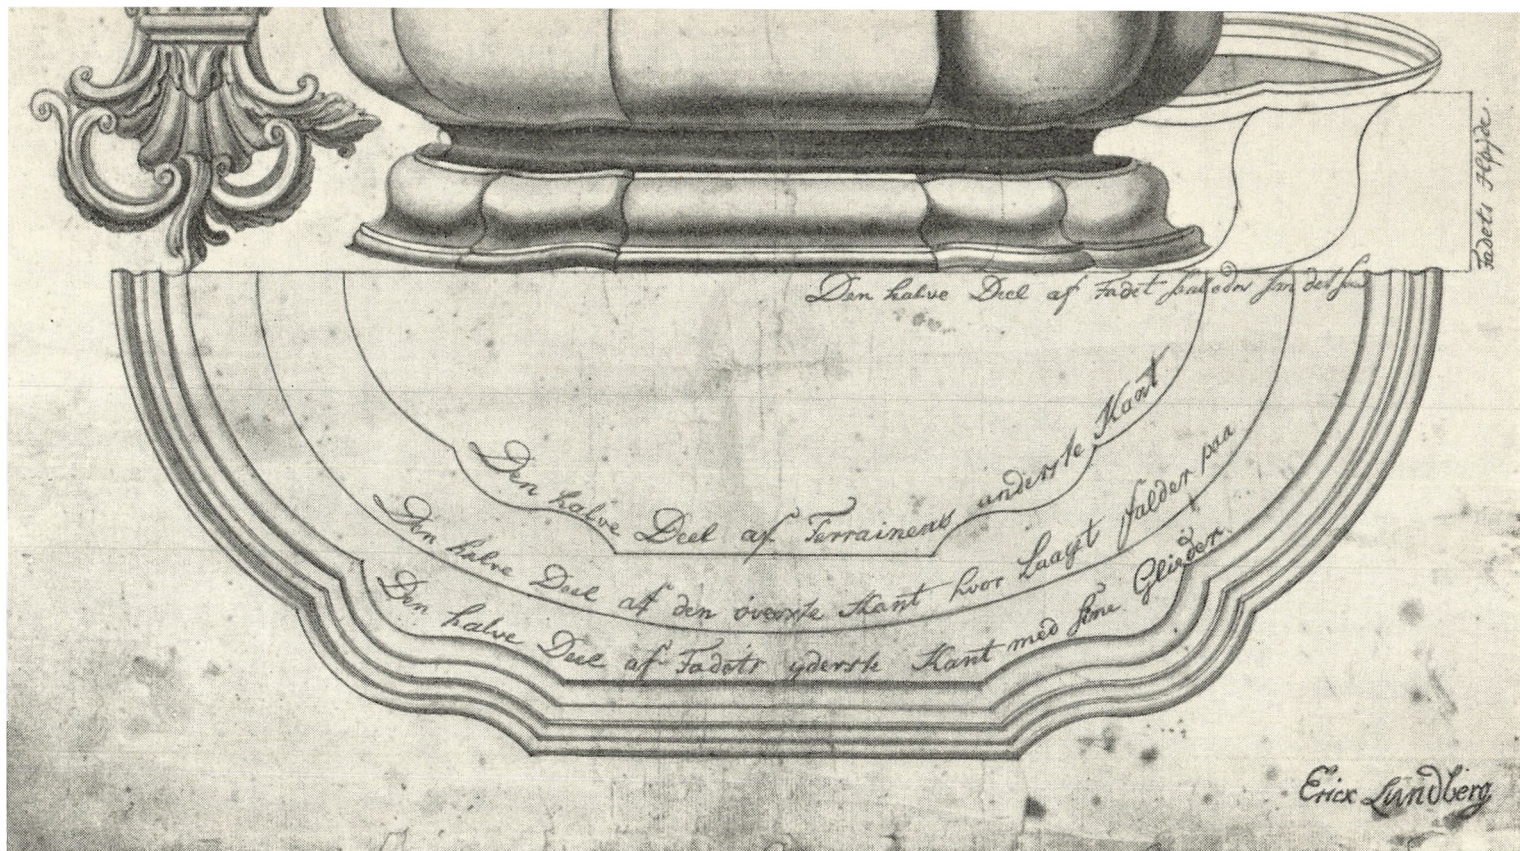 Fadets Høÿde.
Den halve Deel af Fadet
Den halve Deel af Terrainens underste Kant
Den halve Deel af den överste Kant hvor Laaget falder paa
Den halve Deel af Fadets yderste Kant med sine Glieder.
Erick Lundberg